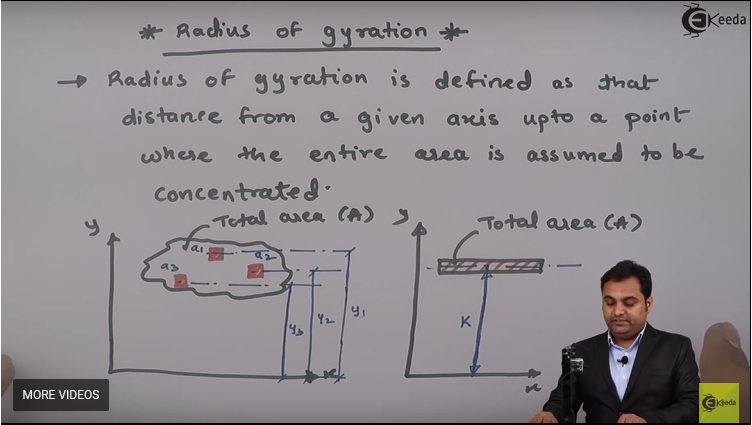 * Radius of gyration *
Ekeeda
→ Radius of gyration is defined as that
distance from a given axis upto a point
where the entire area is assumed to be
concentrated.
y
Total area (A)
a1
a2
a3
y3
y2
y1
x
y
Total area (A)
K
x
MORE VIDEOS
Ekeeda